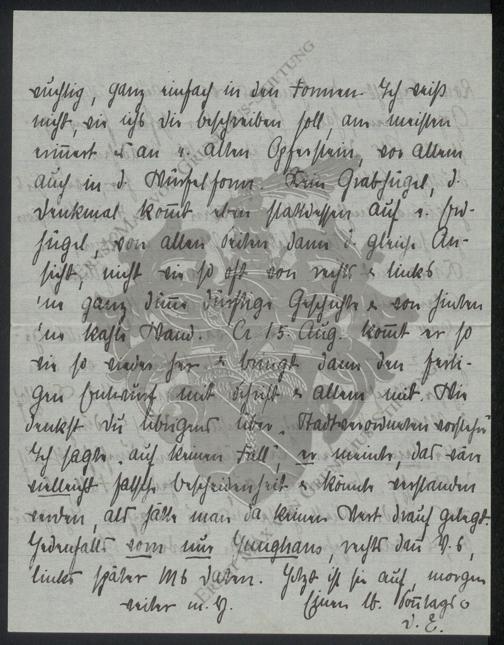 wuchtig, ganz einfach in den Formen. Ich weiß
nicht, wie ichs Dir beschreiben soll, am meisten
erinnert es an e. alten Opferstein, vor allem
auch in d. Würfelform. Kein Grabhügel, d.
Denkmal kommt eben stattdessen auf e. Erd-
hügel, von allen Seiten dann d. gleiche An-
sicht, nicht wie so oft von rechts & links
'ne ganz dünne dürftige Geschichte & von hinten
'ne kahle Wand. Ca 15. Aug. kommt er so
wie so wieder her & bringt dann den ferti-
gen Entwurf mit Schrift & allem mit. Wie
denkst Du übrigens über Stadtverordneten vorsteher
Ich sagte, auf keinen Fall, er meinte, das wäre
vielleicht falsche Bescheidenheit & könnte verstanden
werden, als hätte man da keinen Wert drauf gelegt.
Jedenfalls vorn nur Junghans, rechts dann V.s,
links später Ms Daten. Jetzt ist sie auf, morgen
weiter m. V. Einen lb. Sonntags
D. E.
ERNST-MAX-
STIFTUNG